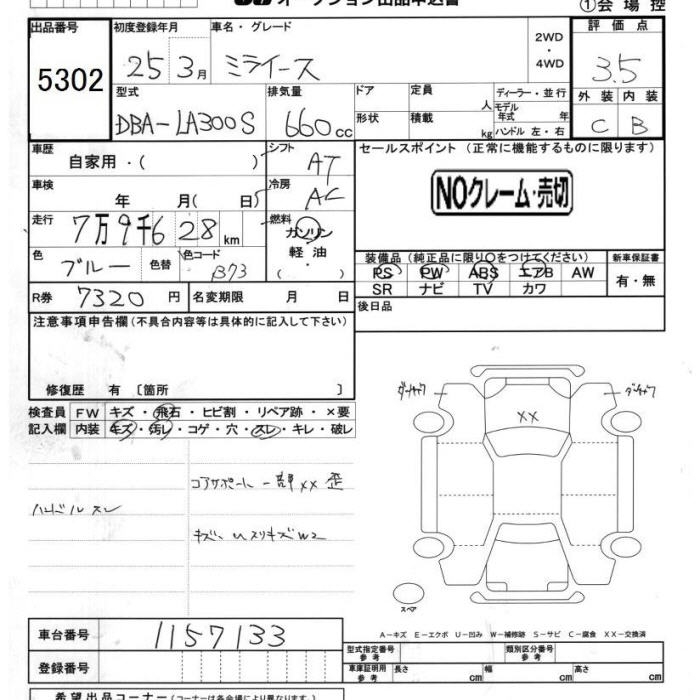 オークション出品申込書
①会場控
出品番号 初度登録年月 車名・グレード 2WD・4WD 評価点
5302 25 3月 ミライース 3.5
型式 排気量 ドア 定員 人 ディーラー・並行 外装 内装
モデル年式 年
DBA-LA300S 660cc 形状 積載 kg ハンドル 左・右 C B
車歴 シフト セールスポイント (正常に機能するものに限ります)
自家用・( ) AT
車検 冷房 NOクレーム・売切
年 月( 日) AC
走行 燃料
7万9千6 28 km ガソリン
色 色替 色コード 軽油 装備品 (純正品に限り○をつけてください) 新車保証書
ブルー B73 ( ) PS PW ABS エアB AW 有・無
SR ナビ TV カワ
R券 7320円 名変期限 月 日 後日品
注意事項申告欄 (不具合内容等は具体的に記入して下さい)
修復歴 有 〔箇所 〕
検査員 FW キズ・飛石・ヒビ割・リペア跡・×要
記入欄 内装 キズ・汚レ・コゲ・穴・スレ・キレ・破レ
コアサポート一部××歪
ハンドルスレ
キズ、UスリキズW2
××
スペア
A-キズ E-エクボ U-凹み W-補修跡 S-サビ C-腐食 XX-交換済
車台番号 1157133
型式指定番号 参考 類別区分番号 参考
登録番号 車庫証明用 参考 長さ cm 幅 cm 高さ cm
希望出品コーナー (コーナーは各会場により異なります)